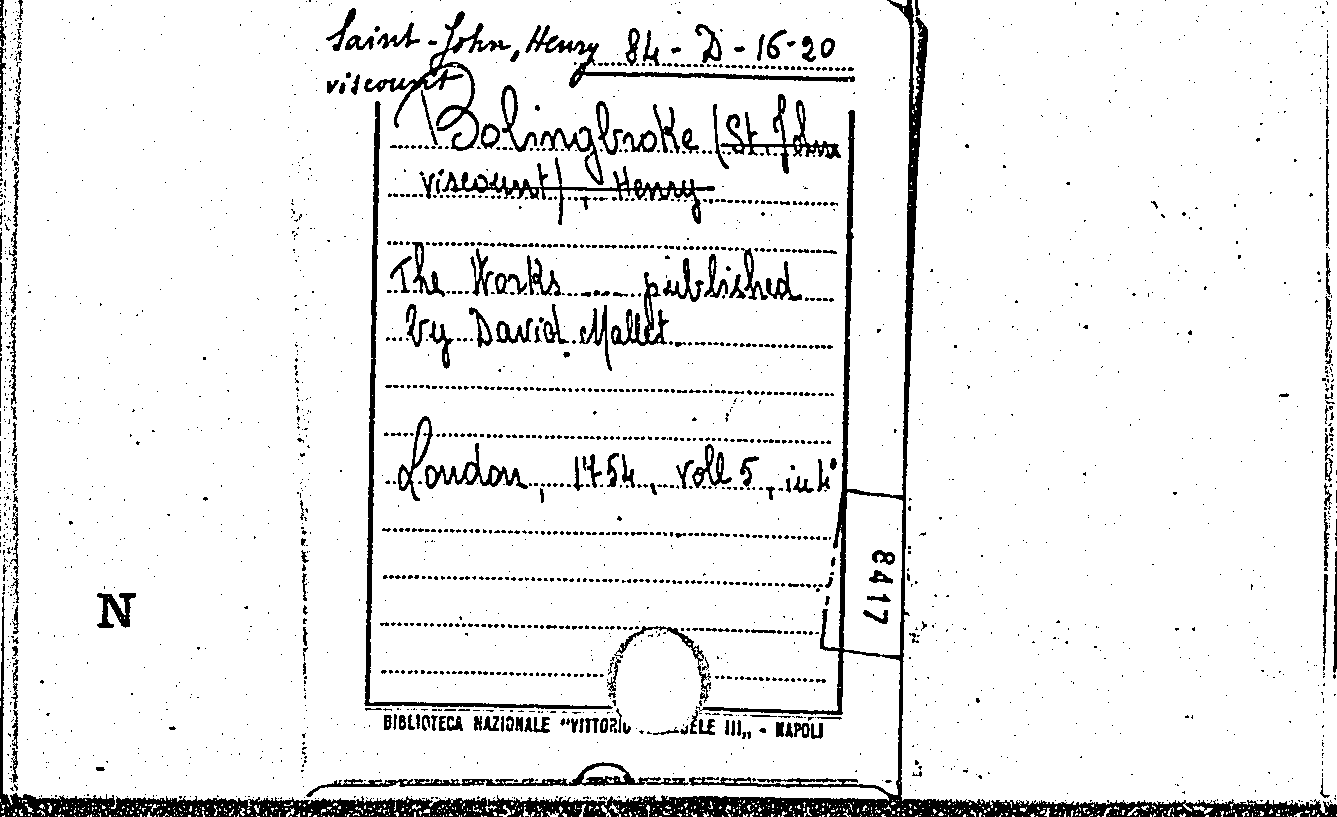 Saint-John, Henry 84-D-16-20
viscount
Bolingbroke (St. John
viscount), Henry
The Works .... published
by David Mallet.
London, 1754, voll 5, in 4°
8417
N
BIBLIOTECA NAZIONALE "VITTORIO ELE III„ - NAPOLI